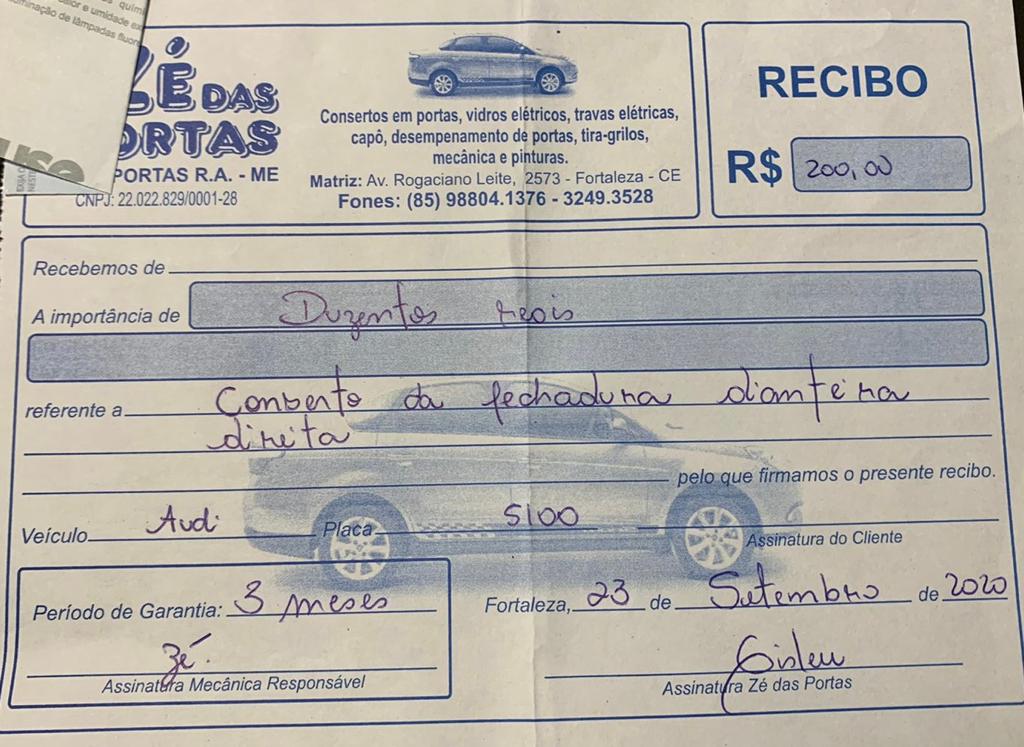 quími
alor e umidade ex
minação de lâmpadas fluor
ZÉ DAS
PORTAS
PORTAS R.A. - ME
CNPJ: 22.022.829/0001-28
Consertos em portas, vidros elétricos, travas elétricas,
capô, desempenamento de portas, tira-grilos,
mecânica e pinturas.
Matriz: Av. Rogaciano Leite, 2573 - Fortaleza - CE
Fones: (85) 98804.1376 - 3249.3528
RECIBO
R$ 200,00
Recebemos de
A importância de Duzentos reais
referente a Conserto da fechadura dianteira
direita
pelo que firmamos o presente recibo.
Veículo Audi Placa 5100
Assinatura do Cliente
Período de Garantia: 3 meses
Zé.
Assinatura Mecânica Responsável
Fortaleza, 23 de Setembro de 2020
Assinatura Zé das Portas